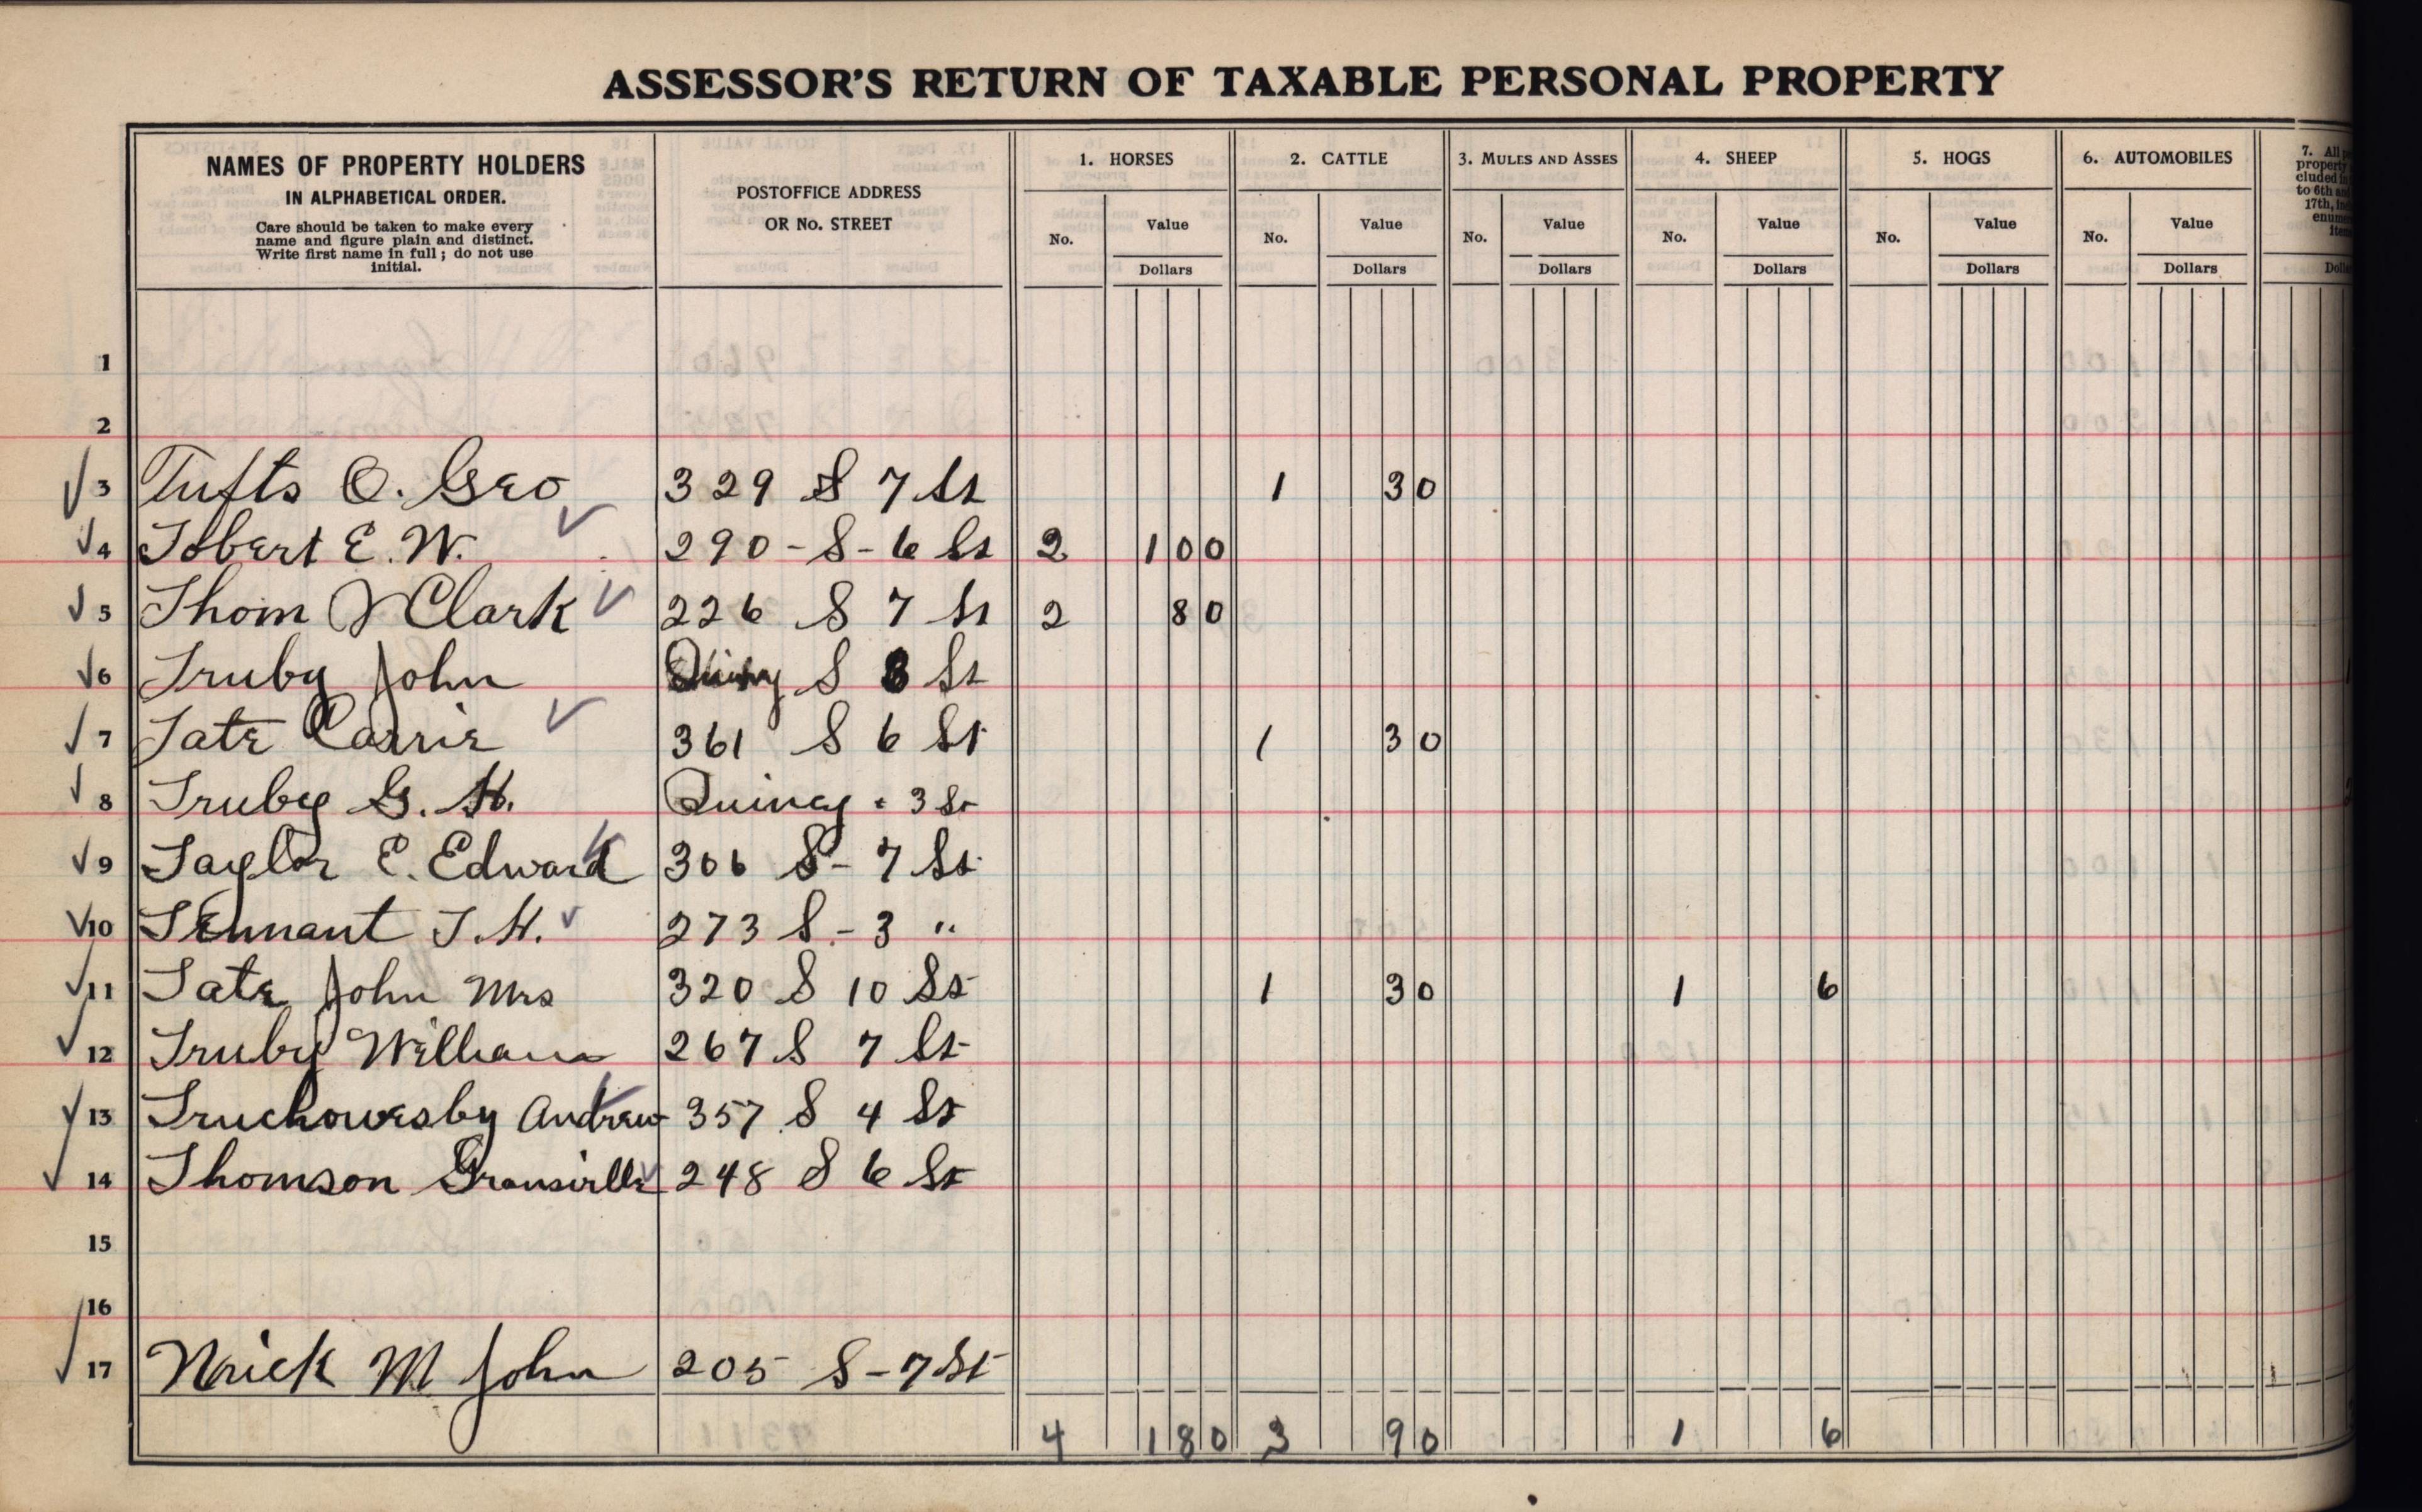 ASSESSOR'S RETURN OF TAXABLE PERSONAL PROPERTY
NAMES OF PROPERTY HOLDERS
IN ALPHABETICAL ORDER.
Care should be taken to make every
name and figure plain and distinct.
Write first name in full; do not use
initial.
POSTOFFICE ADDRESS
OR No. STREET
1. HORSES
No.
Value
Dollars
2. CATTLE
No.
Value
Dollars
3. MULES AND ASSES
No.
Value
Dollars
4. SHEEP
No.
Value
Dollars
5. HOGS
No.
Value
Dollars
6. AUTOMOBILES
No.
Value
Dollars
7. All
property
to 6th and
17th,
1
2
3 Tufts O. Geo 329 S 7 St 1 30
4 Tobert E. W. 290 - S - 6 St 2 100
5 Thom J Clark 226 S 7 St 2 80
6 Truby John Quincy S 3 St
7 Tate Carrie 361 S 6 St 1 30
8 Truby G. H. Quincy . 3 St
9 Taylor E. Edward 306 S - 7 St
10 Tennant T. H. 273 S - 3 "
11 Tate John Mrs 320 S 10 St 1 30 1 6
12 Truby William 267 S 7 St
13 Truchowesby Andrew 357 S 4 St
14 Thomson 248 S 6 St
15
16
17 M John 205 S - 7 St
4 180 3 90 1 6